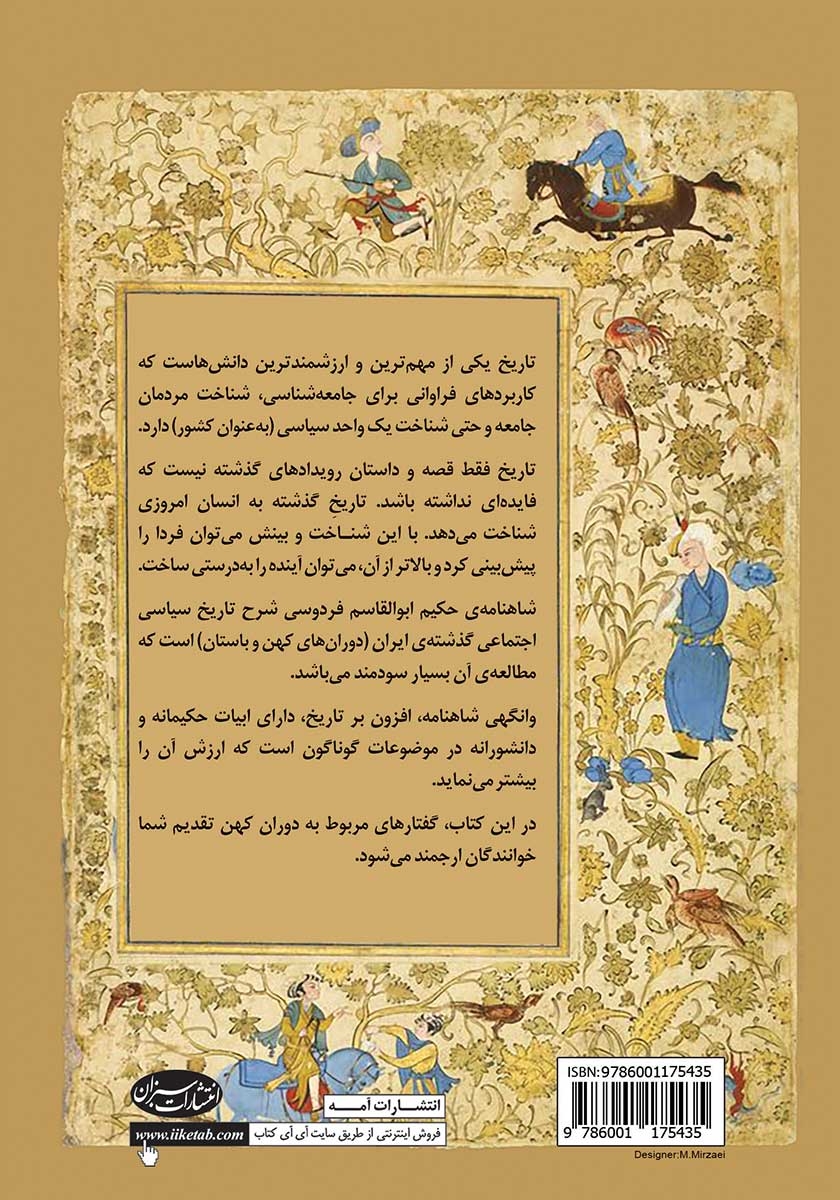 تاریخ یکی از مهم‌ترین و ارزشمندترین دانش‌هاست که
کاربردهای فراوانی برای جامعه‌شناسی، شناخت مردمان
جامعه و حتی شناخت یک واحد سیاسی (به‌عنوان کشور) دارد.
تاریخ فقط قصه و داستان رویدادهای گذشته نیست که
فایده‌ای نداشته باشد. تاریخِ گذشته به انسان امروزی
شناخت می‌دهد. با این شناخت و بینش می‌توان فردا را
پیش‌بینی کرد و بالاتر از آن، می‌توان آینده را به‌درستی ساخت.
شاهنامه‌ی حکیم ابوالقاسم فردوسی شرح تاریخ سیاسی
اجتماعی گذشته‌ی ایران (دوران‌های کهن و باستان) است که
مطالعه‌ی آن بسیار سودمند می‌باشد.
وانگهی شاهنامه، افزون بر تاریخ، دارای ابیات حکیمانه و
دانشورانه در موضوعات گوناگون است که ارزش آن را
بیشتر می‌نماید.
در این کتاب، گفتارهای مربوط به دوران کهن تقدیم شما
خوانندگان ارجمند می‌شود.
انتشارات سبزان
www.iiketab.com
انتشارات آمه
فروش اینترنتی از طریق سایت آی آی کتاب
ISBN: 9786001175435
9 786001 175435
Designer:M.Mirzaei